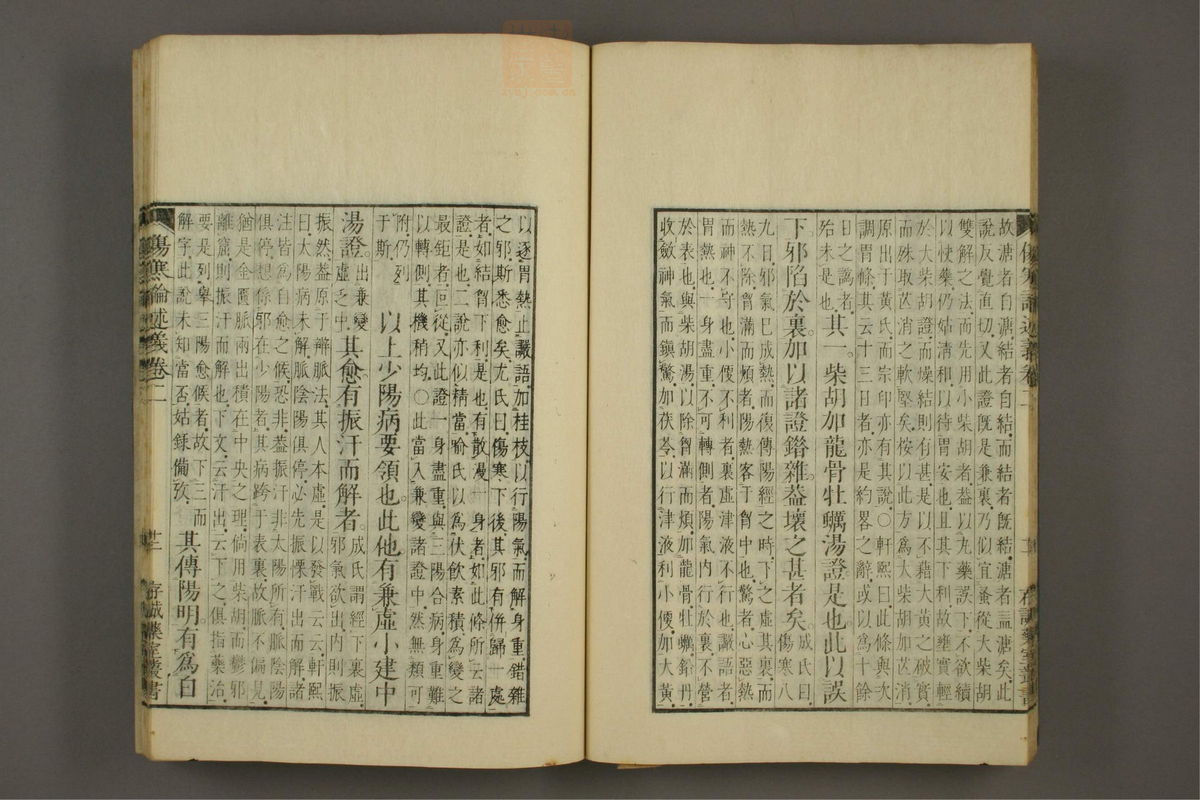 故溏者自溏結者自結而結者既結溏者益溏矣此
說反覺直切又此證既是兼裏乃似宜蚤從大柴胡
雙解之法而先用小柴胡者蓋以九藥誤下不欲續
以快藥仍姑清和以待胃安也且其下利故壅實輕
於大柴胡證而燥結則有甚是以不藉大黃之破實
而殊取芒消之軟堅矣按以此方爲大柴胡加芒消
原出于黃氏而宗印亦有其說○軒熙曰此條與次
調胃條其云十三日者亦是約畧之辭或以爲十餘
日之譌者
殆未是也其一柴胡加龍骨牡蠣湯證是也此以誤
下邪陷於裏加以諸證錯雜蓋壞之甚者矣成氏曰
傷寒八
九日邪氣已成熱而復傳陽經之時下之虛其裏而
熱不除胷滿而煩者陽熱客于胷中也驚者心惡熱
而神不守也小便不利者裏虛津液不行也譫語者
胃熱也一身盡重不可轉側者陽氣內行於裏不營
於表也與柴胡湯以除胷滿而煩加龍骨牡蠣鉛丹
收斂神氣而鎮驚加茯苓以行津液利小便加大黃
以逐胃熱止譫語加桂枝以行陽氣而解身重錯雜
之邪斯悉愈矣尤氏曰傷寒下後其邪有併歸一處
者如結胷下利是也有散漫一身者如此條所云諸
證是也二說亦似精當喻氏以爲伏飲素積爲變之
最鉅者回從又此證一身盡重與三陽合病身重難
以轉側其機稍均○此當入兼變諸證中然無類可
附仍列
于斯以上少陽病要領也此他有兼虛小建中
湯證出兼變
虛之中其愈有振汗而解者成氏謂經下裏虛
邪氣欲出內則振
振然蓋原于辨脈法其人本虛是以發戰云云軒熙
曰太陽病未解脈陰陽俱停必先振慄汗出而解者
注皆爲自愈之候恐非蓋振汗非太陽所有脈陰陽
俱停想係邪在少陽者其病跨于表裏故脈不偏見
猶是金匱脈兩出積在中央之理倘用柴胡而鬱邪
離窟則振汗而解也下文云汗出云下之俱指藥治
要是列舉三陽愈候者故下三而
解字此說未知當否姑錄備攷其傳陽明有爲白
傷寒論述義卷二
廿二
存誠藥室叢書